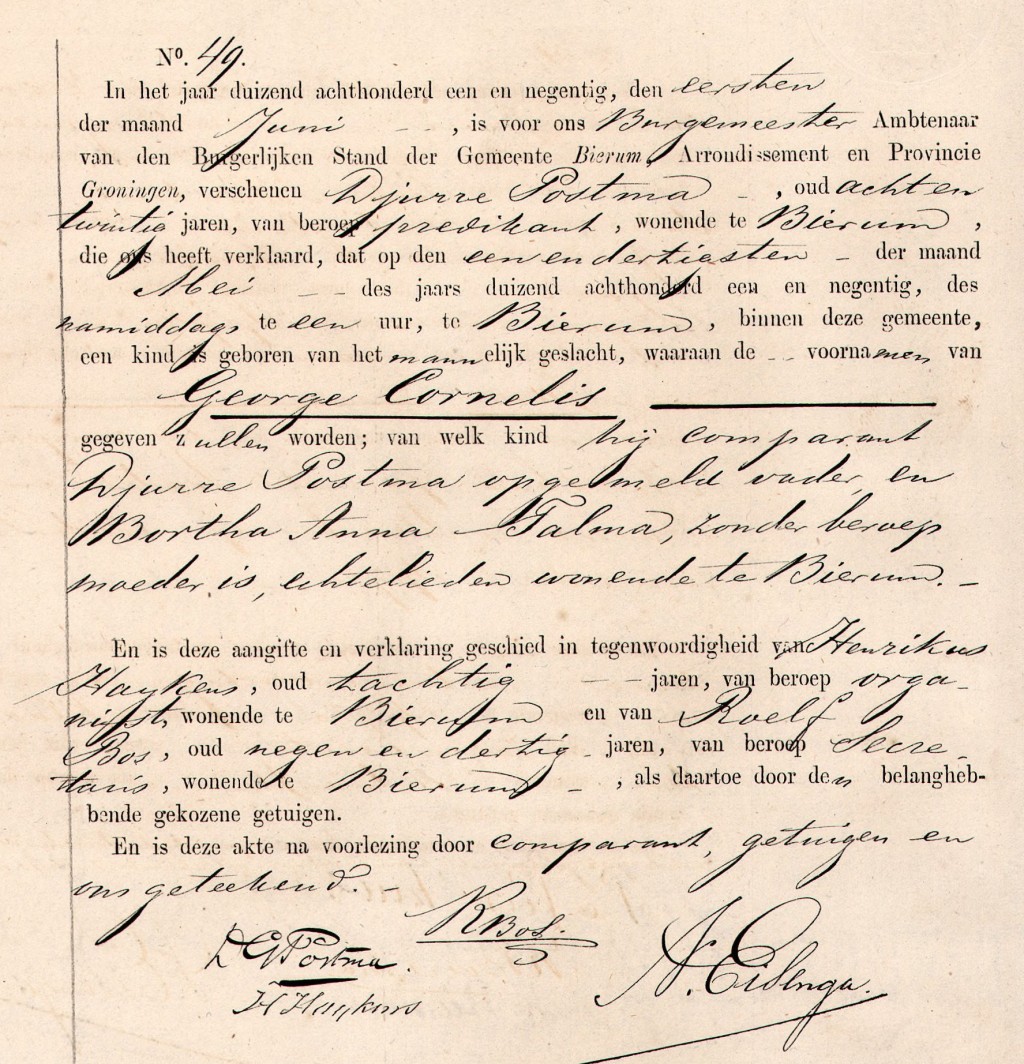 No. 49.
In het jaar duizend achthonderd een en negentig, den eersten
der maand Juni - - , is voor ons Burgemeester Ambtenaar
van den Burgerlijken Stand der Gemeente Bierum, Arrondissement en Provincie
Groningen, verschenen Djurre Postma - , oud acht en
twintig jaren, van beroep predikant, wonende te Bierum ,
die ons heeft verklaard, dat op den een en dertiesten - der maand
Mei - - des jaars duizend achthonderd een en negentig, des
namiddags te een uur, te Bierum , binnen deze gemeente,
een kind is geboren van het mannelijk geslacht, waaraan de - - voornamen van
George Cornelis
gegeven zullen worden; van welk kind hij comparant
Djurre Postma opgemeld vader, en
Bertha Anna Talma, zonder beroep
moeder is, echtelieden wonende te Bierum. -
En is deze aangifte en verklaring geschied in tegenwoordigheid van Henrikus
Haykens, oud tachtig - - jaren, van beroep orga-
nist, wonende te Bierum en van Roelf
Bos, oud negen en dertig - jaren, van beroep Secre
taris, wonende te Bierum - , als daartoe door den belangheb-
bende gekozene getuigen.
En is deze akte na voorlezing door comparant, getuigen en
ons geteekend. -
RBos.
D G Postma.
H Haykens
N. Eisenga.